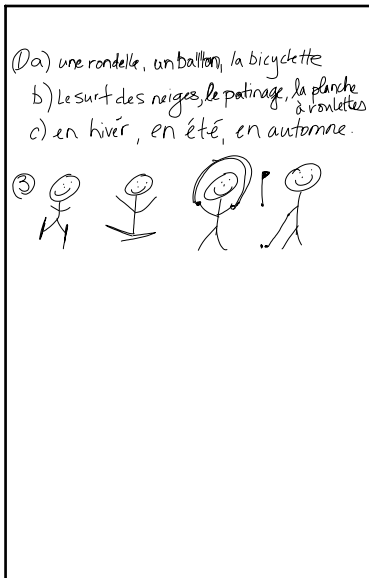 ① a) une rondelle, un ballon, la bicyclette
b) Le surf des neiges, le patinage, la planche
à roulettes
c) en hiver, en été, en automne.
③